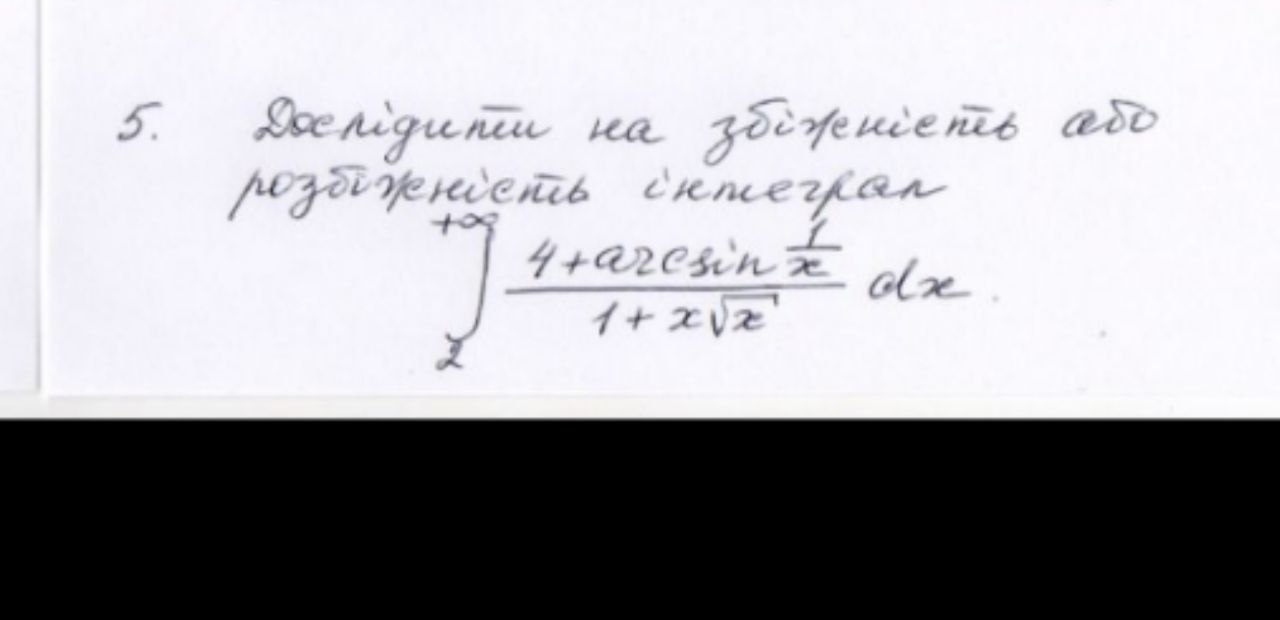 5. Дослідити на збіжність або
розбіжність інтеграл
+∞
∫ (4 + arcsin 1/x) / (1 + x√x) dx.
2